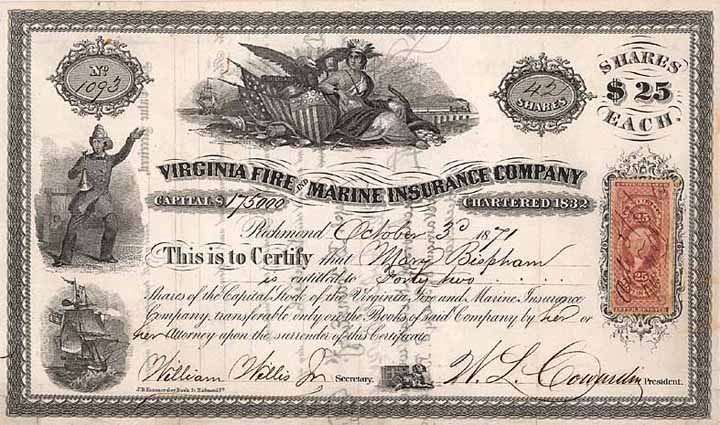 No 1093
42 SHARES
SHARES $25 EACH.
VIRGINIA FIRE AND MARINE INSURANCE COMPANY
CAPITAL $ 175000 CHARTERED 1832
Richmond October 3d 1871
This is to Certify that Mary Bispham
is entitled to Forty two
Shares of the Capital Stock of the Virginia Fire and Marine Insurance
Company, transferable only on the Books of said Company by her or
her Attorney upon the surrender of this Certificate
William Willis Jr Secretary. W. L. Cowardin President.
25
25 25